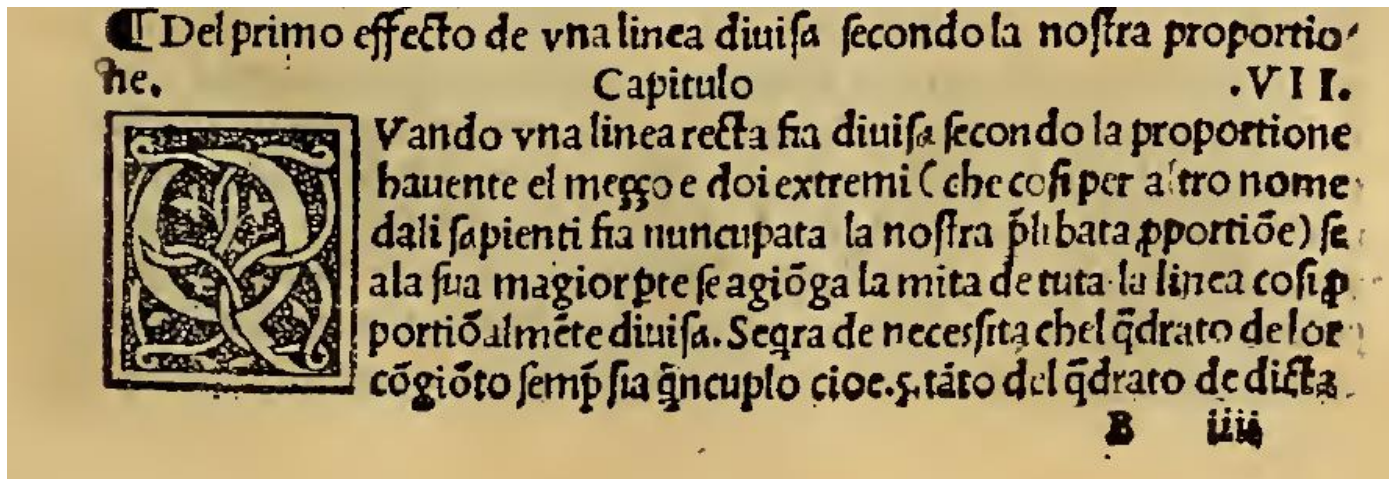 ¶ Del primo effecto de vna linea diuiſa ſecondo la noſtra proportio
ne. Capitulo .VII.
QVando vna linea recta fia diuiſa ſecondo la proportione
hauente el meçço e doi extremi ( che coſi per altro nome
dali ſapienti fia nuncupata la noſtra p̃libata ꝓportiõe) ſe
ala ſua magior ꝑte ſe agiõga la mita de tuta la linea coſi ꝓ
portiõalmẽte diuiſa. Seq̃ra de neceſſita chel q̃drato de lor
cõgiõto ſemp̃ ſia q̃ncuplo cioe .5. tãto del q̃drato de dicta
B iiii